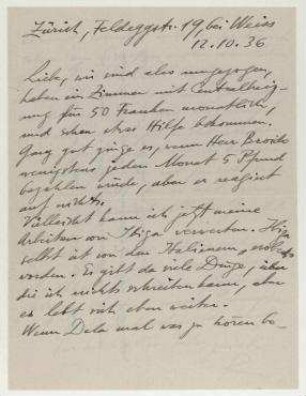 Zürich, Feldeggstr. 19, bei Weiss
12.10.36
Liebe, wir sind also umgezogen,
haben ein Zimmer mit Centralheiz-
ung für 50 Franken monatlich,
und schon etwas Hilfe bekommen.
Ganz gut ginge es, wenn Herr
wenigstens jeden Monat 5 Pfund
bezahlen würde, aber er reagiert
auf nichts.
Vielleicht kann ich jetzt meine
Arbeiten von Ibiza verwerten. Ibiza
selbst ist von den Italienern
worden. Es gibt da viele Dinge, über
die ich nichts schreiben kann, aber
es lebt sich eben weiter.
Wenn Dela mal was zu hören be-